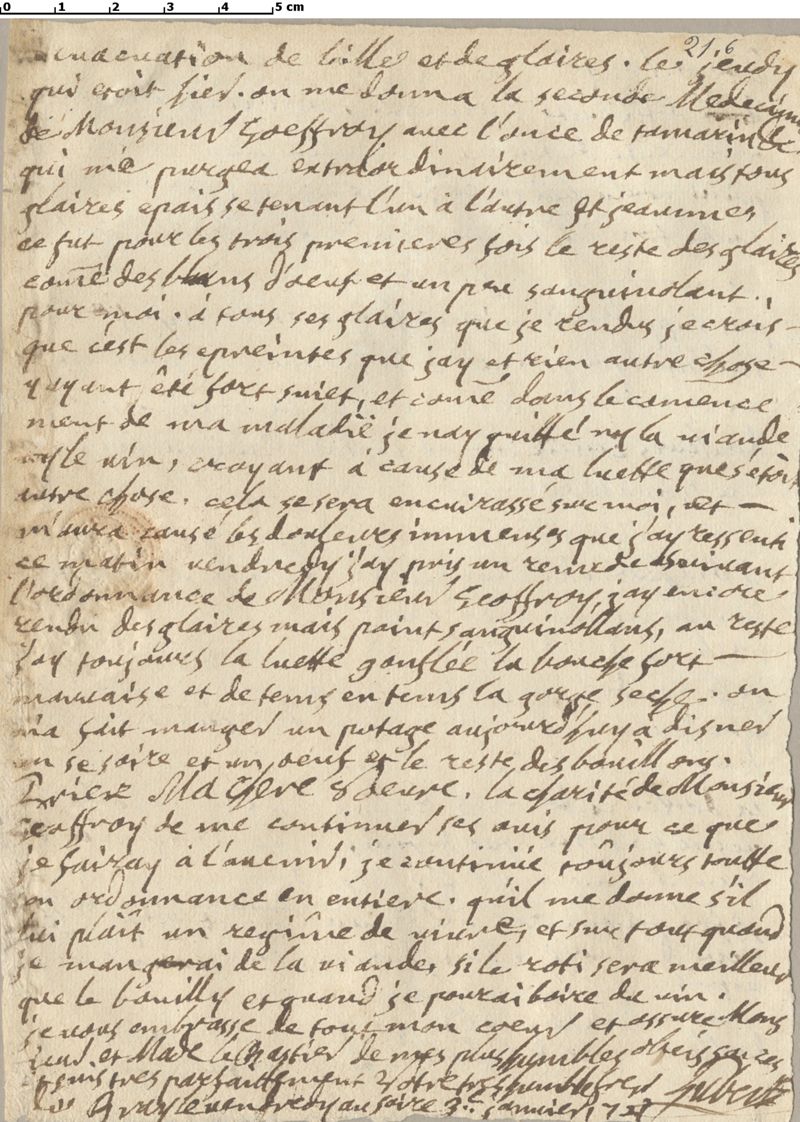 0 1 2 3 4 5 cm
21.6
evacuation de bille et de glaires. le jeudy
qui etoit hier. on me donna la seconde Medecine
de Monsieur Geoffroy avec l'once de tamarin
qui me purgea extraordinairement mais tous
glaires epais se tenant l'un à l'autre et jeaunes
ce fut pour les trois premieres fois le reste des glaires
come des blans d'oeuf et un peu sanguinolant.,
pour moi. à tous ses glaires que je rendus je crois -
que c'est les epreintes que jay et rien autre chose -
y ayant été fort suiet, et comē dans le comence
ment de ma maladie je nay quitté ny la viande
ny le vin, croyant à cause de ma luette que s'etoit
autre chose. cela se sera encuirassé sur moi, et -
m'aura causé les douleurs immenses que j'ay ressenti
ce matin vendredy j'ay pris un remede suivant
l'ordonnance de Monsieur Geoffroy, jay encore
rendu des glaires mais point sanguinollans, au reste
jay toujours la luette gonflée la bouche fort -
mauvaise et de tems en tems la gorge seche. on
m'a fait manger un potage aujourd'huy à disner
un se soire et un oeuf et le reste des bouillons.
Priez Ma Chere Soeure. la charité de Monsieur
Geoffroy de me continuer ses avis pour ce que
je fairay à l'avenir, je continüe toûjours toutte
son ordonnance en entiere. qu'il me donne s'il
lui plaît un regîme de vivre, et sur tout quand
je mangerai de la viande, si le roti sera meilleur
que le bouilly et quand je pourai boire du vin.
je vous embrasse de tout mon coeur et assure Mons
ieur et Made le de mes plus humbles obeissances
et suis tres parfaitement Votre tres humble frere
Gray le vendredy au soire 3e janvier, 1727